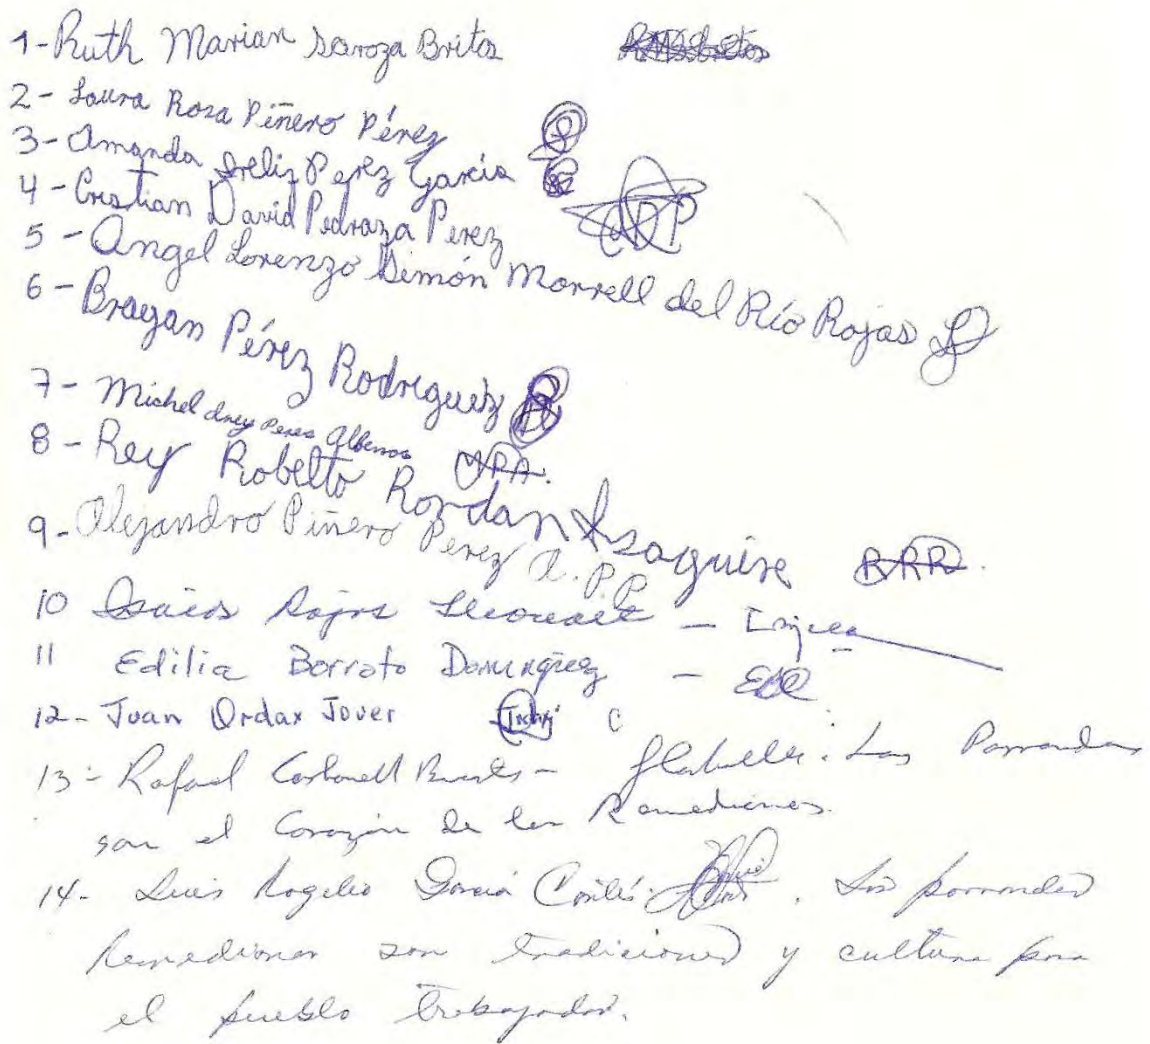 1- Ruth Marian Saroza Britos
2- Laura Rosa Piñero Pérez
3- Amanda Ireliz Perez García
4- Cristian David Pedraza Perez CDPP
5- Angel Lorenzo Simón Morrell del Río Rojas
6- Brayan Pérez Rodríguez
7- Michel Peres MPA.
8- Rey Roberto Rondan RRR.
9- Alejandro Piñero Perez A.P.P
10 Isaías Rojas —
11 Edilia Borroto Domínguez —
12- Juan Ordax Jover
13- Rafael Carbonell - Las Parrandas
son el Corazón de los Remedianos.
14- Luis Rogelio García Cortés. Las parrandas
Remedianas son tradiciones y cultura para
el pueblo trabajador.